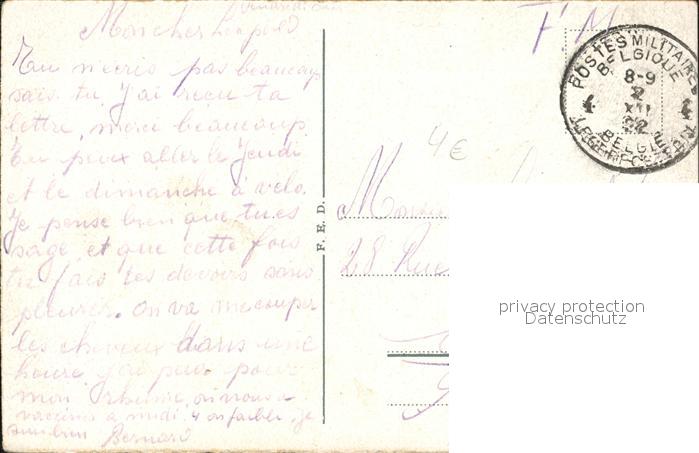 Mon cher Léopold
Tu n'ecris pas beaucoup
sais tu. J'ai reçu ta
lettre, merci beaucoup.
Tu peux aller le Jeudi
et le dimanche à velo.
Je pense bien que tu es
sage, et que cette fois
tu fais tes devoirs sans
pleurer. On va me couper
les cheveux dans une
heure, j'ai peur pour
mon rhume, on nous a
vaccinés à midi. 4 on faibli, je
suis bien
Bernard
F. E. D.
F.M.
POSTES MILITAIRES
BELGIQUE
8-9
2
XII
22
4 4
BELGIE
LEGERPOSTERIJ
4€
28 Rue
privacy protection
Datenschutz